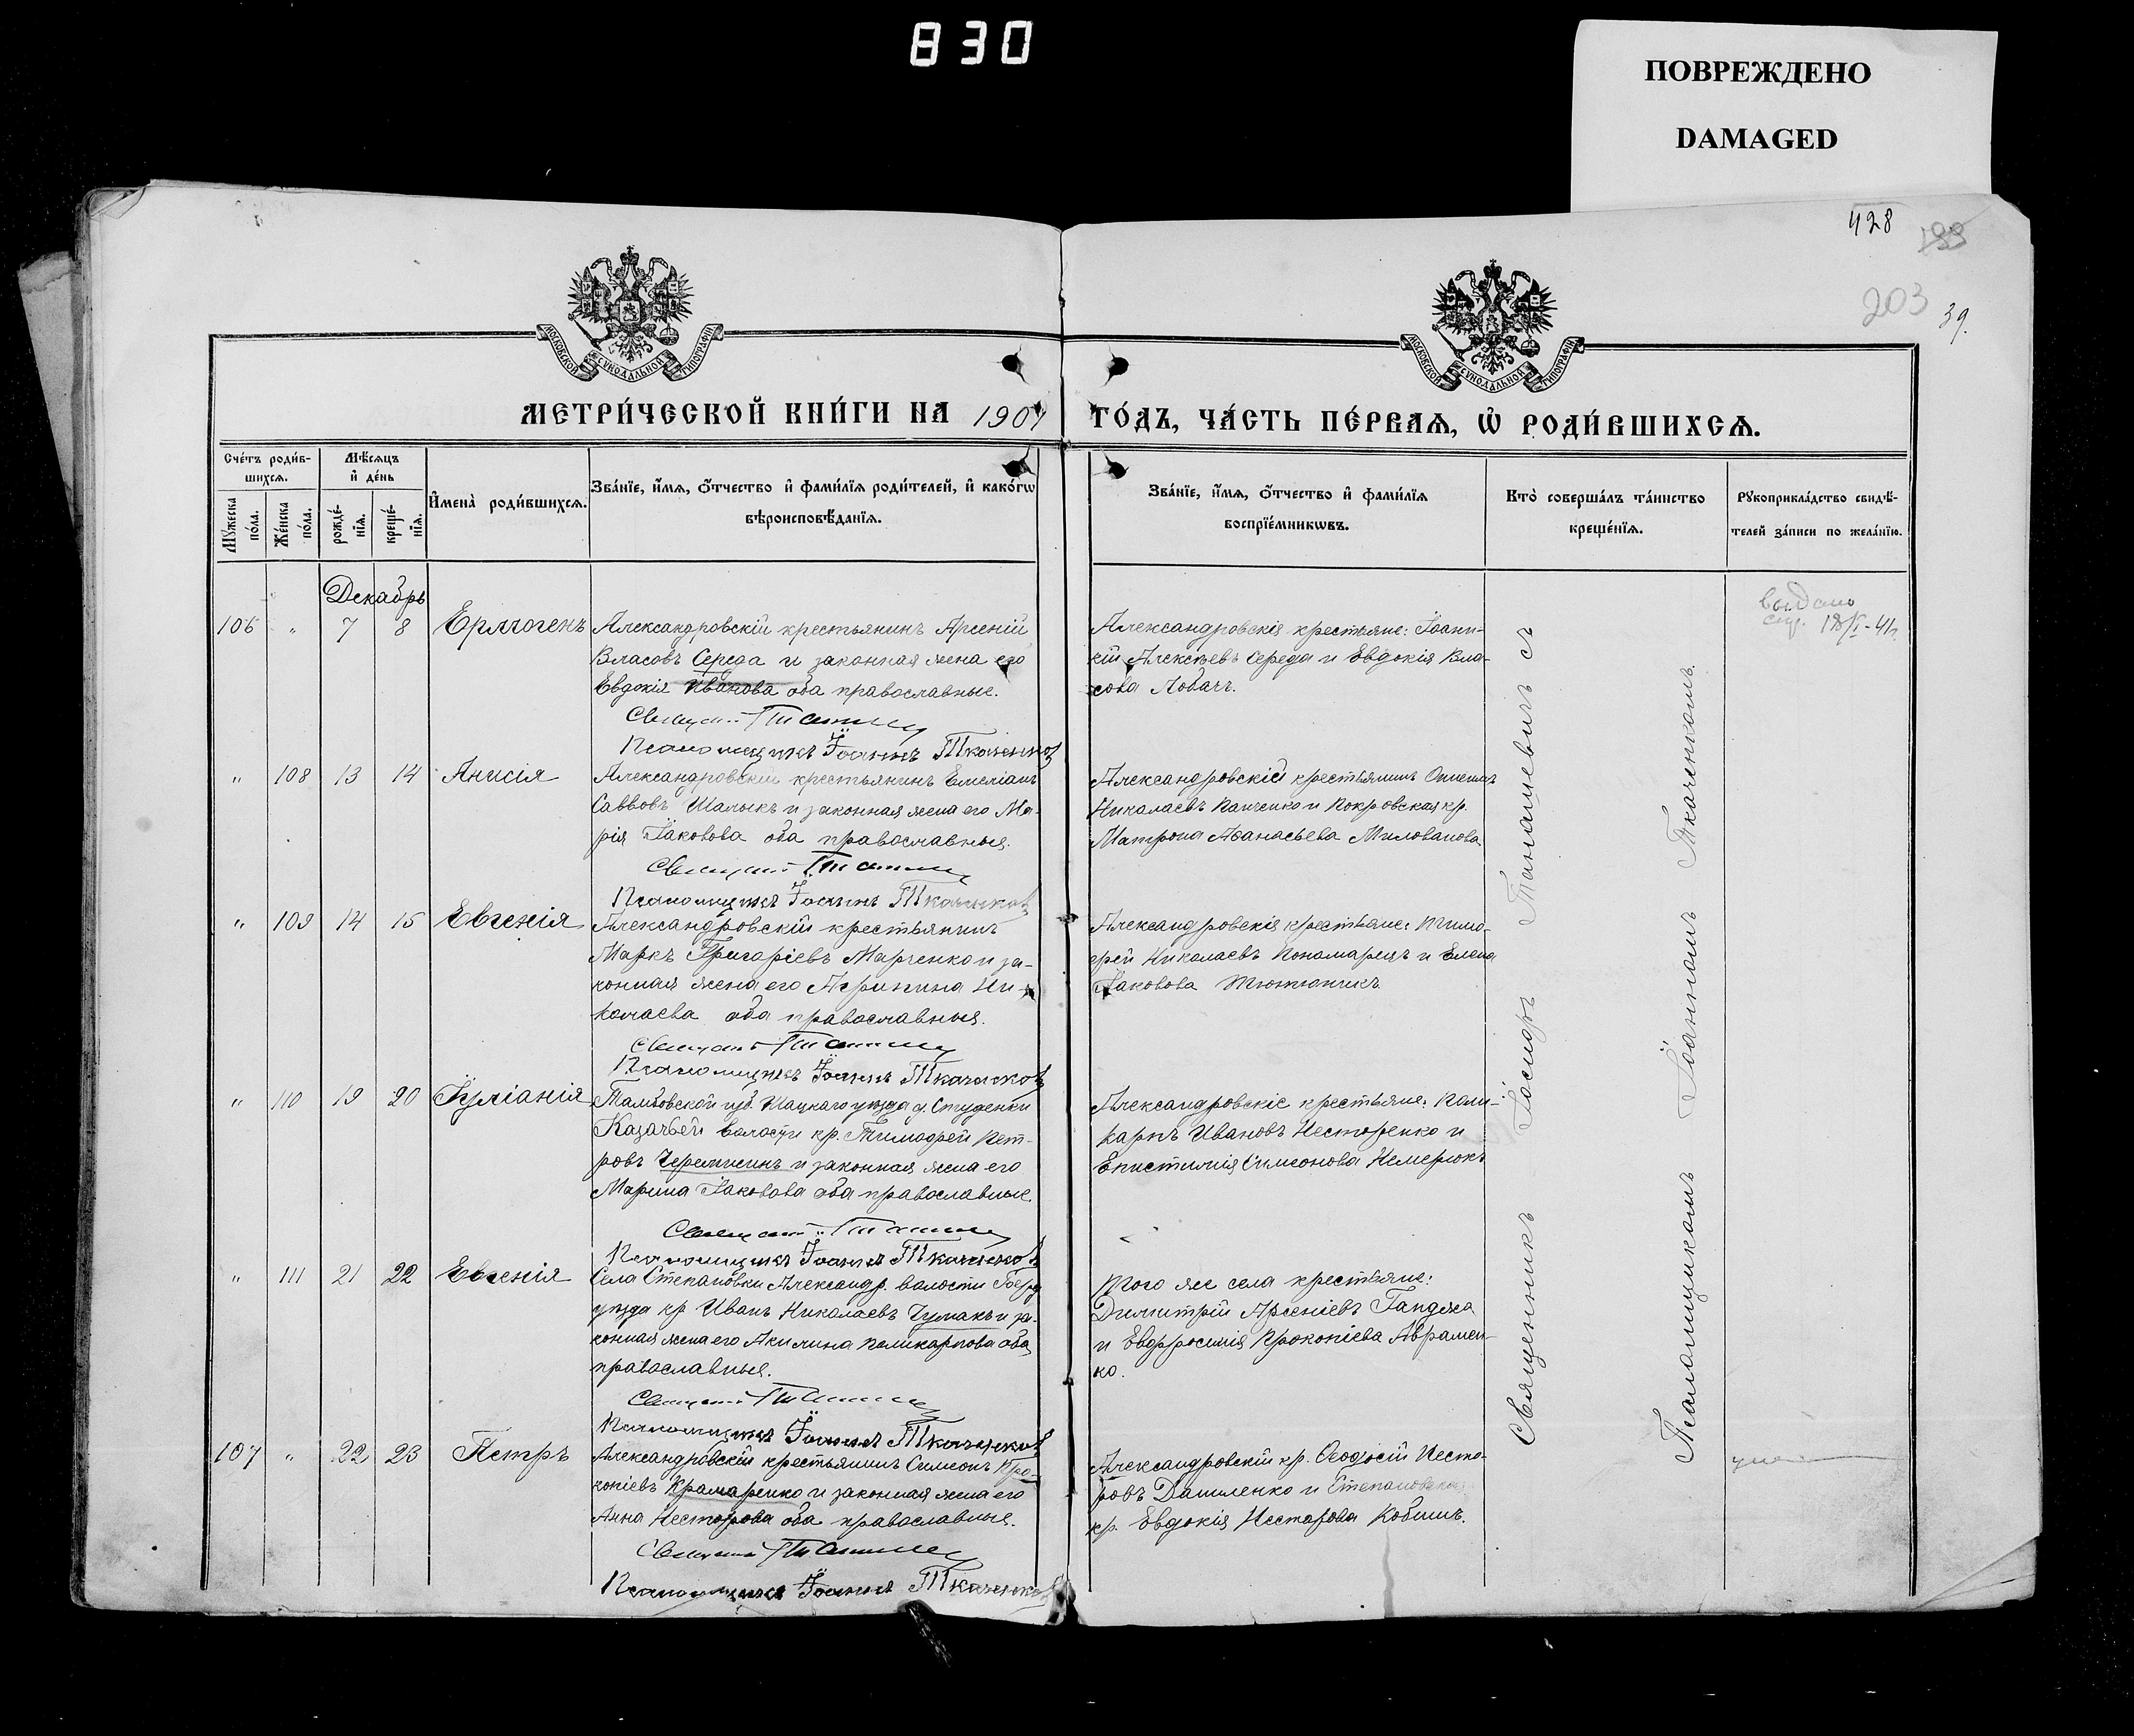 830
ПОВРЕЖДЕНО
DAMAGED
428
199
203
39.
МОСКОВСКОЙ СѴНОДАЛЬНОЙ ТИПОГРАФІИ
МОСКОВСКОЙ СѴНОДАЛЬНОЙ ТИПОГРАФІИ
МЕТРИ́ЧЕСКОЙ КНИ́ГИ НА 1901
ГО́ДЪ, ЧА́СТЬ ПЕ́РВАѦ, Ѡ҆ РОДИ́ВШИХСѦ.
Сче́тъ роди́в-
шихсѧ.
Мѣ́сѧцъ
и҆ де́нь
Мꙋ́жеска
по́ла.
Же́нска
по́ла.
рожде́-
нїѧ.
креще́-
нїѧ.
И҆мена̀ роди́вшихсѧ.
Зва́нїе, и҆́мѧ, ѻ҆́тчество и҆ фами́лїѧ роди́телей, и҆ како́гѡ
вѣроисповѣ́данїѧ.
Зва́нїе, и҆́мѧ, ѻ҆́тчество и҆ фами́лїѧ
воспрїе́мникѡвъ.
Кто̀ соверша́лъ та́инство
креще́нїѧ.
Рꙋкоприкла́дство свидѣ́-
телей за́писи по жела́нїю.
Декабрь
106 " 7 8 Ермогенъ
Александровскій крестьянинъ Арсеній
Власовъ Середа и законная жена его
Евдокія Иванова оба православные.
Псаломщикъ Іоаннъ Ткаченков
Александровскія крестьяне: Іоанн-
кій Алексѣевъ Середа и Евдокія Вла-
сова Лобачъ.
выдано
18/I-41г.
" 108 13 14 Анисія
Александровскій крестьянинъ Емеліанъ
Саввовъ Шалыкъ и законная жена его Ма-
рія Іаковова оба православныя.
Псаломщикъ Іоаннъ Ткаченков
Александровскій крестьянинъ
Николаевъ Панченко и Покровская кр.
Матрона Аѳанасьева Милованова
" 109 14 15 Евгенія
Александровскій крестьянинъ
Маркъ Григоріевъ Марченко и за-
конная жена его Агрипина Ни-
колаева оба православныя.
Псаломщикъ Іоаннъ Ткаченков
Александровскія крестьяне: Тимо-
фей Николаевъ Пономарецъ и Елена
Іаковова Тютюнникъ
" 110 19 20 Іуліанія
Тамбовской губ. Шацкаго уѣзда д. Студенки
Казачьей волости кр. Тимофей Пет-
ровъ Черемисинъ и законная жена его
Марина Іаковова оба православные.
Псаломщикъ Іоаннъ Ткаченков
Александровскіе крестьяне: Поли-
карпъ Ивановъ Несторенко и
Епистимія Симеонова Немерюкъ
" 111 21 22 Евгенія
Села Степановки Александр. волости
уѣзда кр. Иванъ Николаевъ Чумакъ и за-
конная жена его Акилина Поликарпова оба
православныя.
Псаломщикъ Іоаннъ Ткаченков
Того же села крестьяне:
Димитрій Арсеніевъ Ганджа
и Евфросинія Прокопіева Аврамен-
ко.
107 " 22 23 Петръ
Александровскій крестьянинъ Симеонъ Про-
копіевъ Крамаренко и законная жена его
Анна Несторова оба православныя.
Псаломщикъ Іоаннъ Ткаченков
Александровскій кр. Ѳеодосій Несто-
ровъ Даниленко и Степановская
кр. Евдокія Несторова Кобишъ.
Священникъ Іосифъ Танашевичъ съ
Псаломщикомъ Іоанномъ Ткаченкомъ.